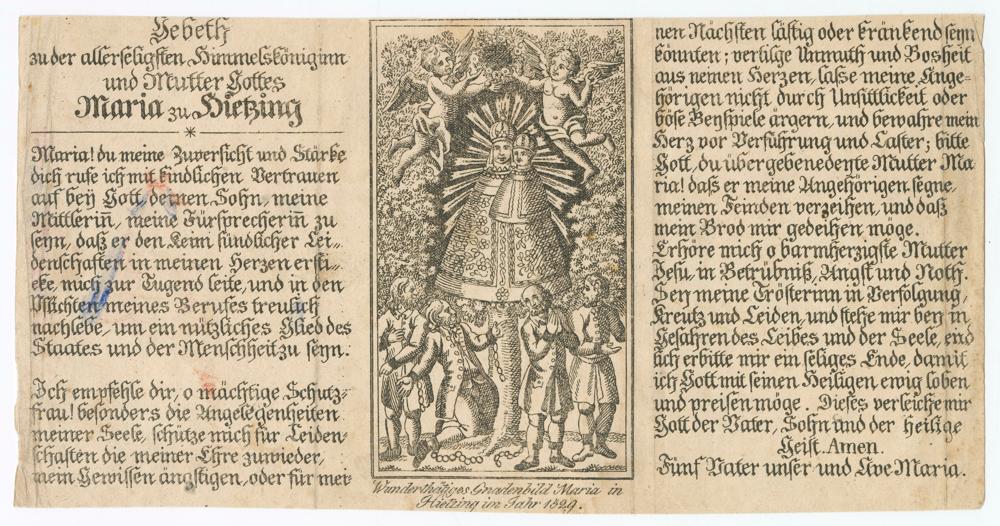 Gebeth
zu der allerseligsten Himmelsköniginn
und Mutter Gottes
Maria zu Hietzing
Maria! du meine Zuversicht und Stärke
dich rufe ich mit kindlichen Vertrauen
auf bey Gott, deinen Sohn, meine
Mittlerin̄, meine Fürsprecherin̄ zu
seyn, daß er den Keim sündlicher Lei-
denschaften in meinen Herzen ersti-
cke, mich zur Tugend leite, und in den
Pflichten meines Berufes treulich
nachlebe, um ein nützliches Glied des
Staates und der Menschheit zu seyn.
Ich empfehle dir, o mächtige Schutz-
frau! besonders die Angelegenheiten
meiner Seele, schütze mich für Leiden-
schaften die meiner Ehre zuwieder,
mein Gewissen ängstigen, oder für mei-
Wunderthätiges Gnadenbild Maria in
Hietzing im Jahr 1829.
nen Nächsten lästig oder kränkend seyn
könnten; vertilge Unmuth und Bosheit
aus meinen Herzen, lasse meine Ange-
hörigen nicht durch Unsittlickeit oder
böse Beyspiele ärgern, und bewahre mein
Herz vor Verführung und Laster; bitte
Gott, du übergebenedeyte Mutter Ma
ria! daß er meine Angehörigen segne,
meinen Feinden verzeihen, und daß
mein Brod mir gedeihen möge.
Erhöre mich o barmherzigste Mutter
Jesu, in Betrübniß, Angst und Noth.
Sey meine Trösterinn in Verfolgung,
Kreutz und Leiden, und stehe mir bey in
Gefahren des Leibes und der Seele, end
lich erbitte mir ein seliges Ende, damit
ich Gott mit seinen Heiligen ewig loben
und preisen möge. Dieses verleiche mir
Gott der Vater, Sohn und der heilige
Geist. Amen.
Fünf Vater unser und Ave Maria.